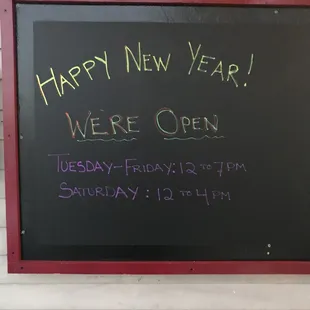 HAPPY NEW YEAR!
WE'RE OPEN
TUESDAY-FRIDAY: 12 TO 7PM
SATURDAY: 12 TO 4PM